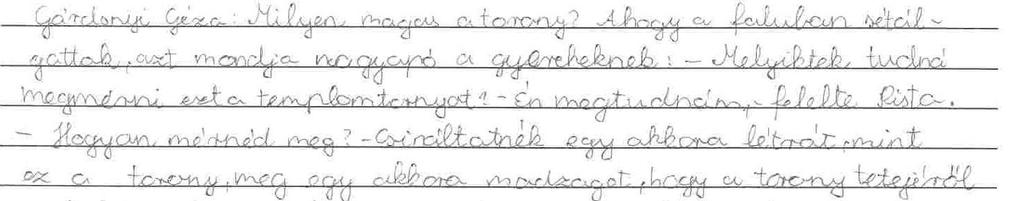 Gárdonyi Géza: Milyen magas a torony? Ahogy a faluban sétál-
gattak, azt mondja nagyapó a gyerekeknek: - Melyiktek tudná
megmérni ezt a templomtornyot? - Én megtudnám, - felelte Pista.
- Hogyan mérnéd meg? - Csináltatnék egy akkora létrát, mint
ez a torony, meg egy akkora madzagot, hogy a torony tetejéről